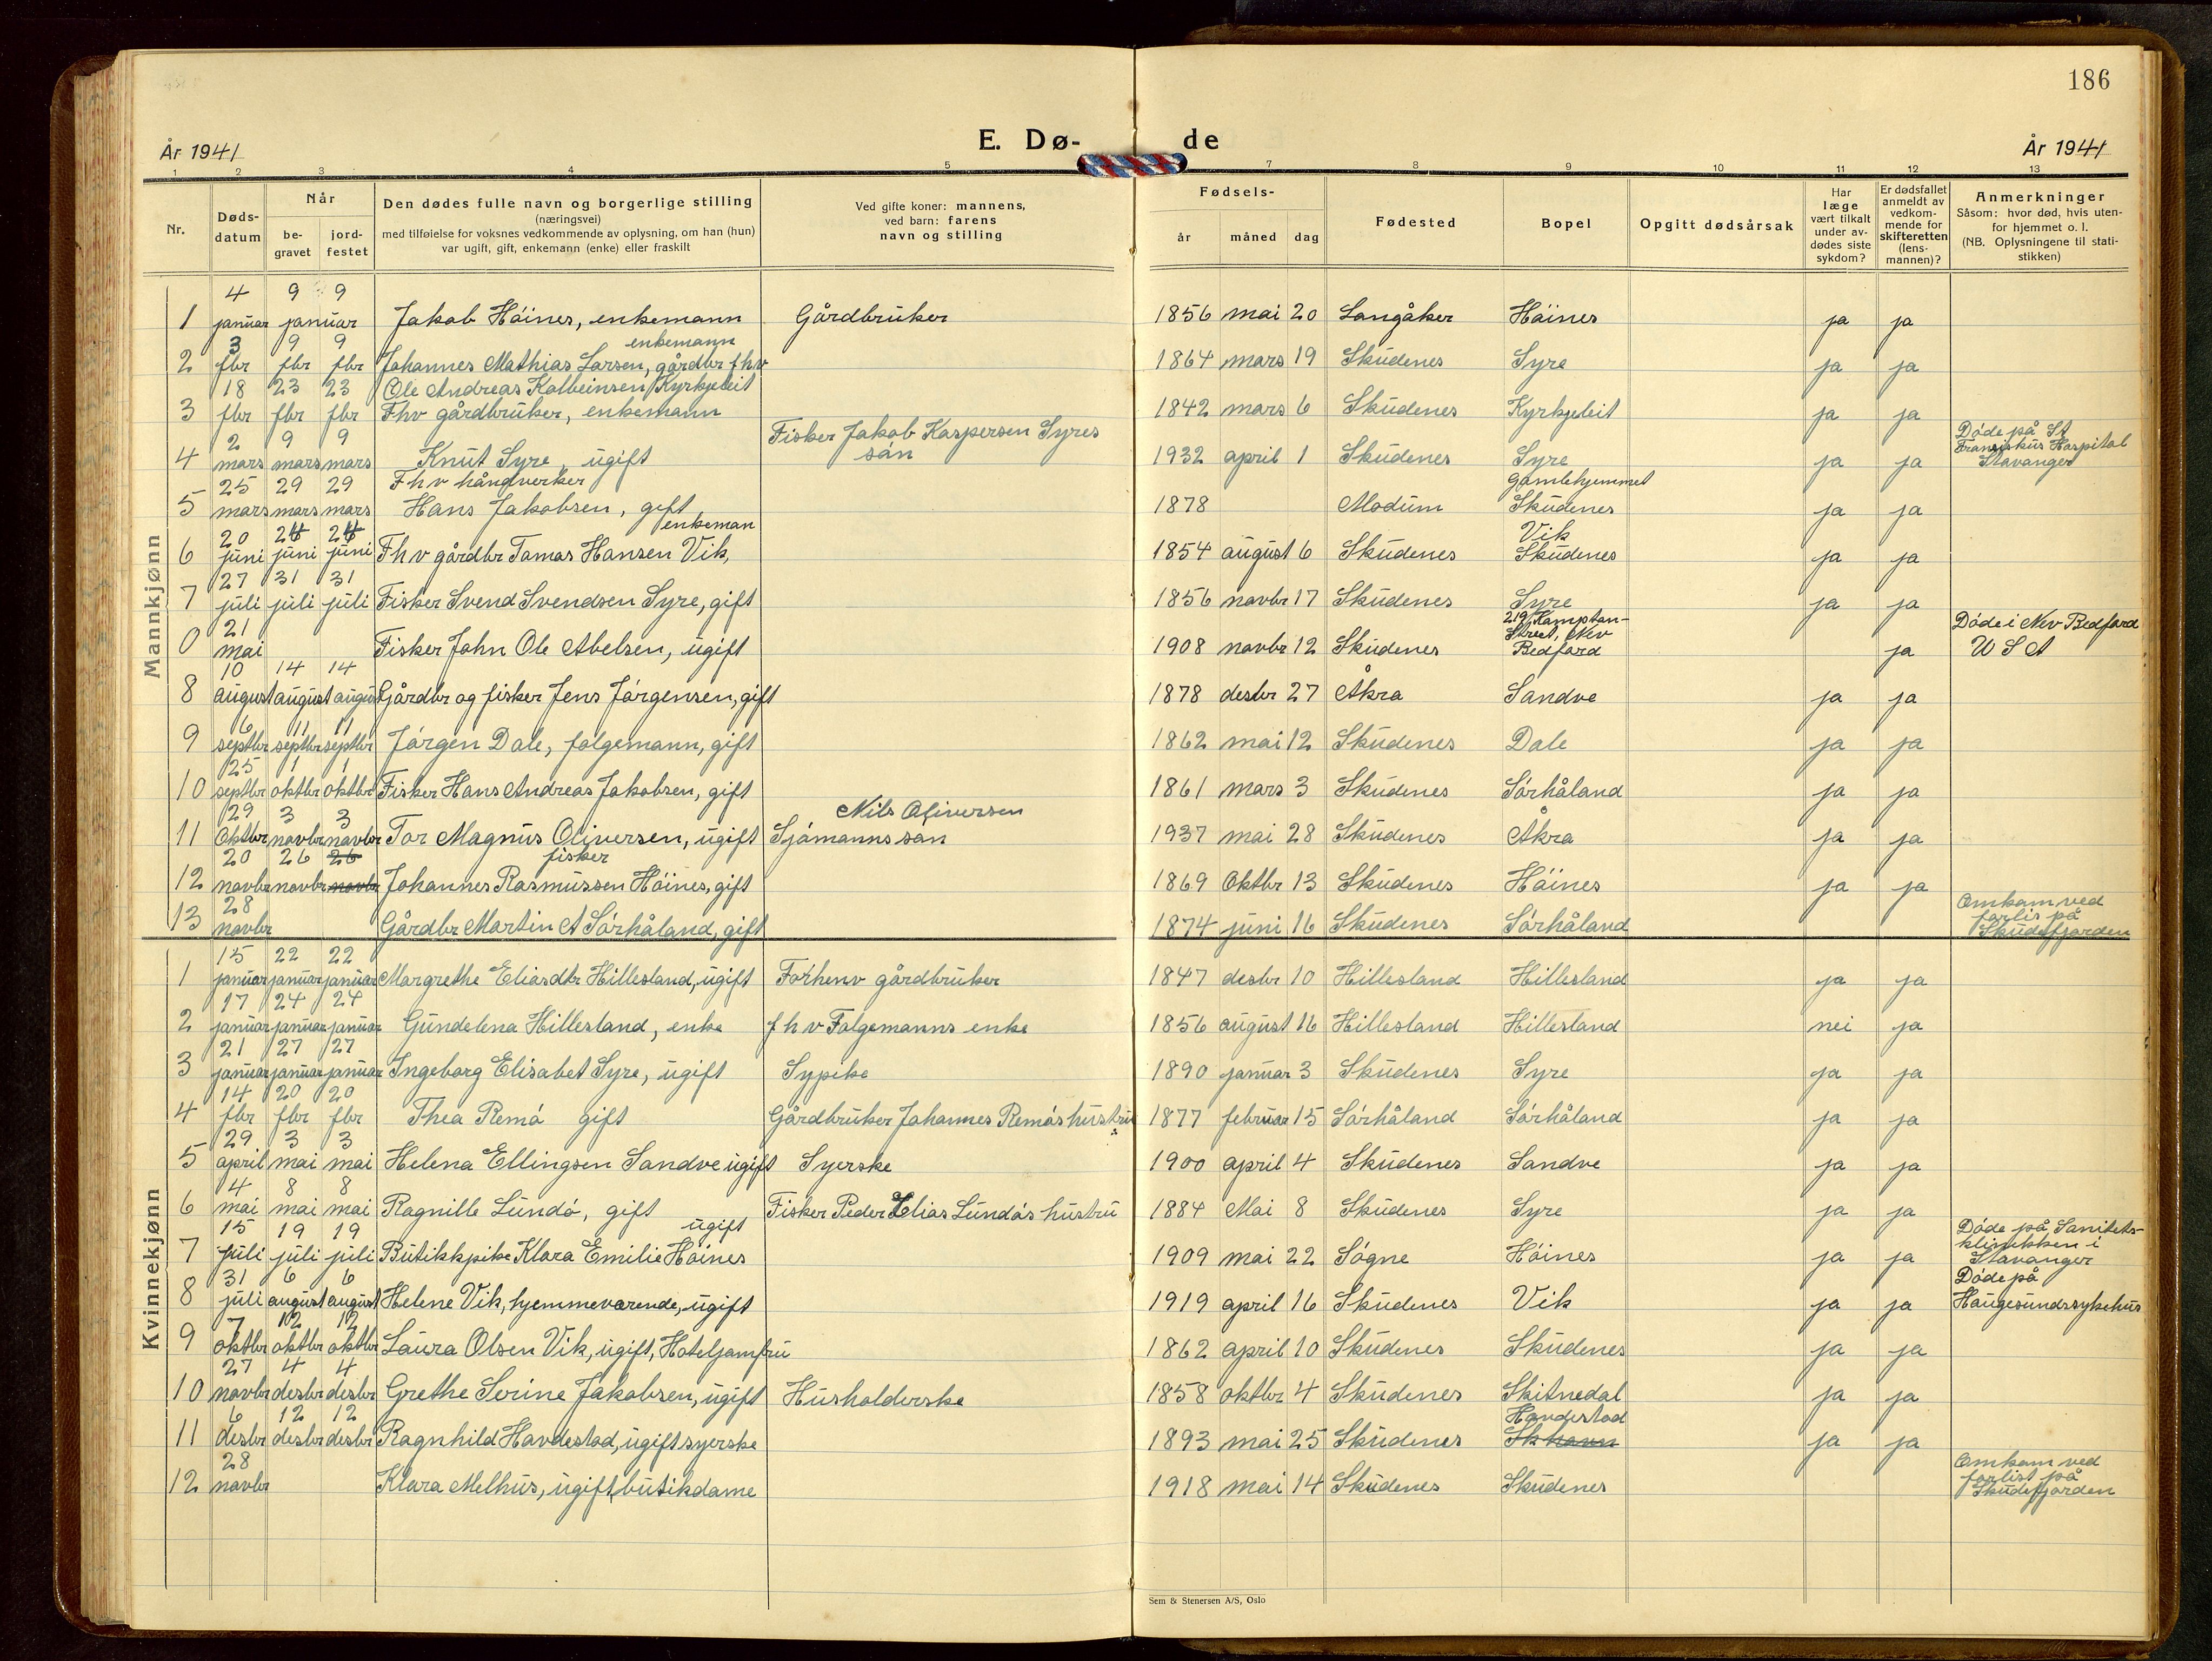 186
År 1941
E. Dø-
de
År 1941
1 2 3 4 5 7 8 9 10 11 12 13
Nr.
Døds-
datum
Når
be-
gravet
jord-
festet
Den dødes fulle navn og borgerlige stilling
(næringsvei)
med tilføielse for voksnes vedkommende av oplysning, om han (hun)
var ugift, gift, enkemann (enke) eller fraskilt
Ved gifte koner: mannens,
ved barn: farens
navn og stilling
Fødsels-
år måned dag
Fødested
Bopel
Opgitt dødsårsak
Har
læge
vært tilkalt
under av-
dødes siste
sykdom?
Er dødsfallet
anmeldt av
vedkom-
mende for
skifteretten
(lens-
mannen)?
Anmerkninger
Såsom: hvor død, hvis uten-
for hjemmet o. l.
(NB. Oplysningene til stati-
stikken)
Mannkjønn
4 9 9
1 januar januar Jakob Höines, enkemann Gårdbruker 1856 mai 20 Langåker Höines ja ja
3 9 9 enkemann
2 fbr fbr fbr Johannes Mathias Larsen, gårdbr fhv 1864 mars 19 Skudenes Syre ja ja
18 23 23 Ole Andreas Kolbeinsen Kyrkjeleit
3 fbr fbr fbr Fhv gårdbruker, enkemann 1842 mars 6 Skudenes Kyrkjeleit ja ja
2 9 9 Fisker Jakob Kaspersen Syres Döde på St
4 mars mars mars Knut Syre, ugift sön 1932 april 1 Skudenes Syre ja ja Fransiskus Hospital
Stavanger
25 29 29 Fhv håndverker Gamlehjemmet
5 mars mars mars Hans Jakobsen, gift 1878 Modum Skudenes ja ja
20 24 24 enkeman Vik
6 juni juni juni Fhv gårdbr Tomas Hansen Vik, 1854 august 6 Skudenes Skudenes ja ja
27 31 31
7 juli juli juli Fisker Svend Svendsen Syre, gift 1856 novbr 17 Skudenes Syre ja ja
21 219 Kamptan- Street, New Döde i New Bedford
0 mai Fisker John Ole Abelsen, ugift 1908 novbr 12 Skudenes Bedford ja U S A
10 14 14
8 august august august Gårdbr og fisker Jens Jörgensen, gift 1878 desbr 27 Åkra Sandve ja ja
6 11 11
9 septbr septbr septbr Jörgen Dale, folgemann, gift 1862 mai 12 Skudenes Dale ja ja
25 1 1
10 septbr oktbr oktbr Fisker Hans Andreas Jakobsen, gift 1861 mars 3 Skudenes Sörhåland ja ja
29 3 3 Nils Oliversen
11 Oktbr novbr novbr Tor Magnus Oliversen, ugift Sjömanns sön 1937 mai 28 Skudenes Åkra ja ja
20 26 26 fisker
12 novbr novbr novbr Johannes Rasmussen Höines, gift 1869 Oktbr 13 Skudenes Höines ja ja
28 Omkom ved
13 novbr Gårdbr Martin A Sörhåland, gift 1874 juni 16 Skudenes Sörhåland forlis på
Skudefjorden
Kvinnekjønn
15 22 22
1 januar januar januar Margrethe Eliasdtr Hillesland, ugift Forhenv gårdbruker 1847 desbr 10 Hillesland Hillesland ja ja
17 24 24
2 januar januar januar Gundelena Hillesland, enke fhv Folgemanns enke 1856 august 16 Hillesland Hillesland nei ja
21 27 27
3 januar januar januar Ingeborg Elisabet Syre, ugift Sypike 1890 januar 3 Skudenes Syre ja ja
14 20 20
4 fbr fbr fbr Thea Remö gift Gårdbruker Johannes Remös hustru 1877 februar 15 Sörhåland Sörhåland ja ja
29 3 3
5 april mai mai Helena Ellingsen Sandve ugift Syerske 1900 april 4 Skudenes Sandve ja ja
4 8 8
6 mai mai mai Ragnille Lundö, gift Fisker Peder Elias Lundös hustru 1884 Mai 8 Skudenes Syre ja ja
15 19 19 ugift Döde på Sanitets-
7 juli juli juli Butikkpike Klara Emilie Höines 1909 mai 22 Sögne Höines ja ja klinikken i
Stavanger
31 6 6 Döde på
8 juli august august Helene Vik, hjemmeværende, ugift 1919 april 16 Skudenes Vik ja ja Haugesunds sykehus
7 12 12
9 oktbr oktbr oktbr Laura Olsen Vik, ugift, Hoteljomfru 1862 april 10 Skudenes Skudenes ja ja
27 4 4
10 novbr desbr desbr Grethe Serine Jakobsen, ugift Husholderske 1858 oktbr 4 Skudenes Skitnedal ja ja
6 12 12 Havdestad
11 desbr desbr desbr Ragnhild Havdestad, ugift syerske 1893 mai 25 Skudenes Skhavn ja ja
28 Omkom ved
12 novbr Klara Melhus, ugift, butikdame 1918 mai 14 Skudenes Skudenes forlist på
Skudefjorden
Sem & Stenersen A/S, Oslo